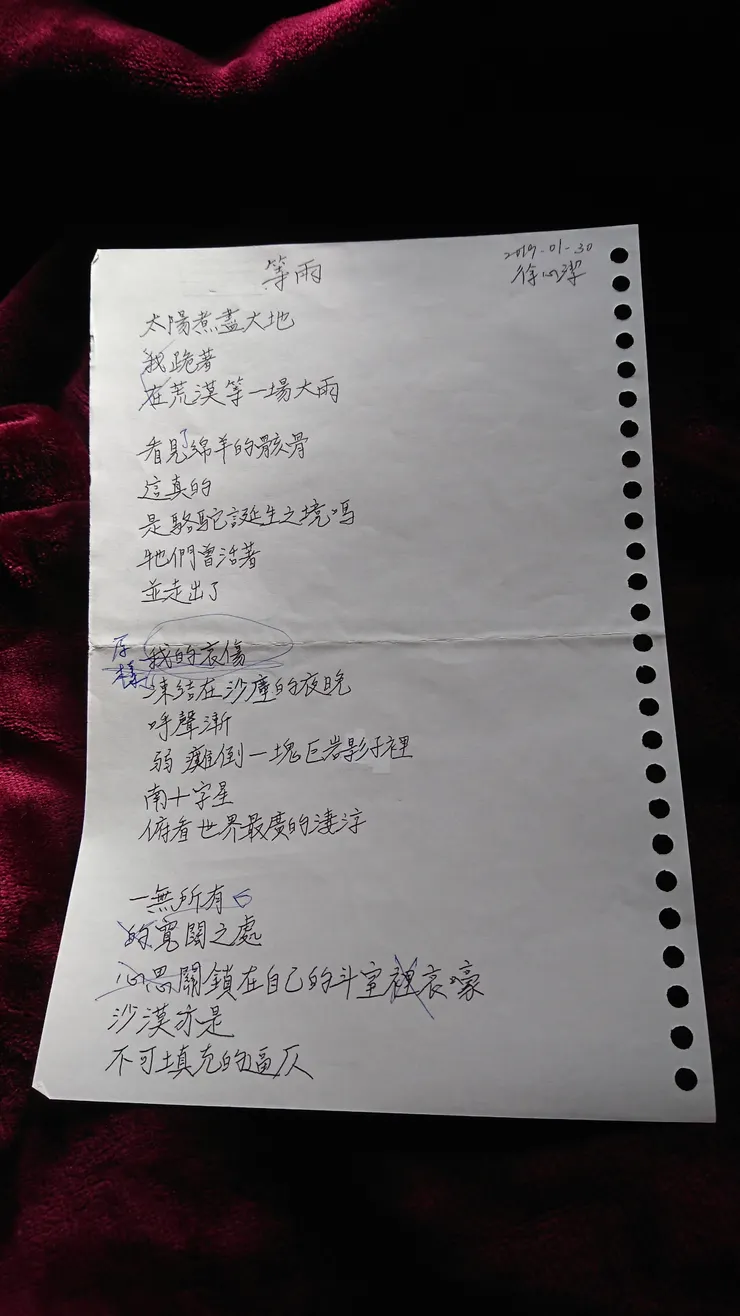 等雨
2019-01-30
徐心潔
太陽煮盡大地
我跪著
在荒漠等一場大雨
看見了綿羊的骸骨
這真的
是駱駝誕生之境嗎
牠們曾活著
並走出了
原樣
我的哀傷
凍結在沙塵的夜晚
呼聲漸
弱 癱倒一塊巨岩影子裡
南十字星
俯看世界最廣的淒涼
一無所有
的寬闊之處
心思關鎖在自己的斗室裡哀嚎
沙漠亦是
不可填充的逼仄